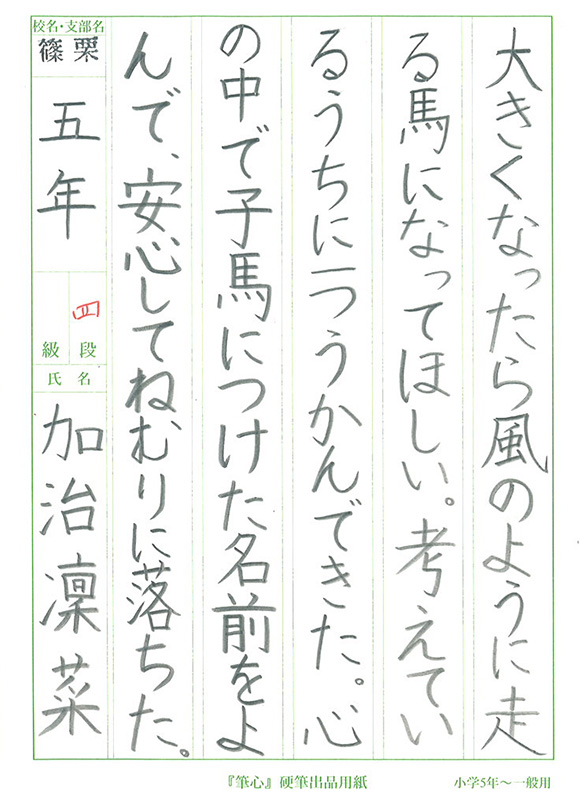 大きくなったら風のように走
る馬になってほしい。考えてい
るうちに一つうかんできた。心
の中で子馬につけた名前をよ
んで、安心してねむりに落ちた。
校名・支部名
篠栗
五年
四
級 段
氏名
加治凜菜
『筆心』硬筆出品用紙
小学5年～一般用